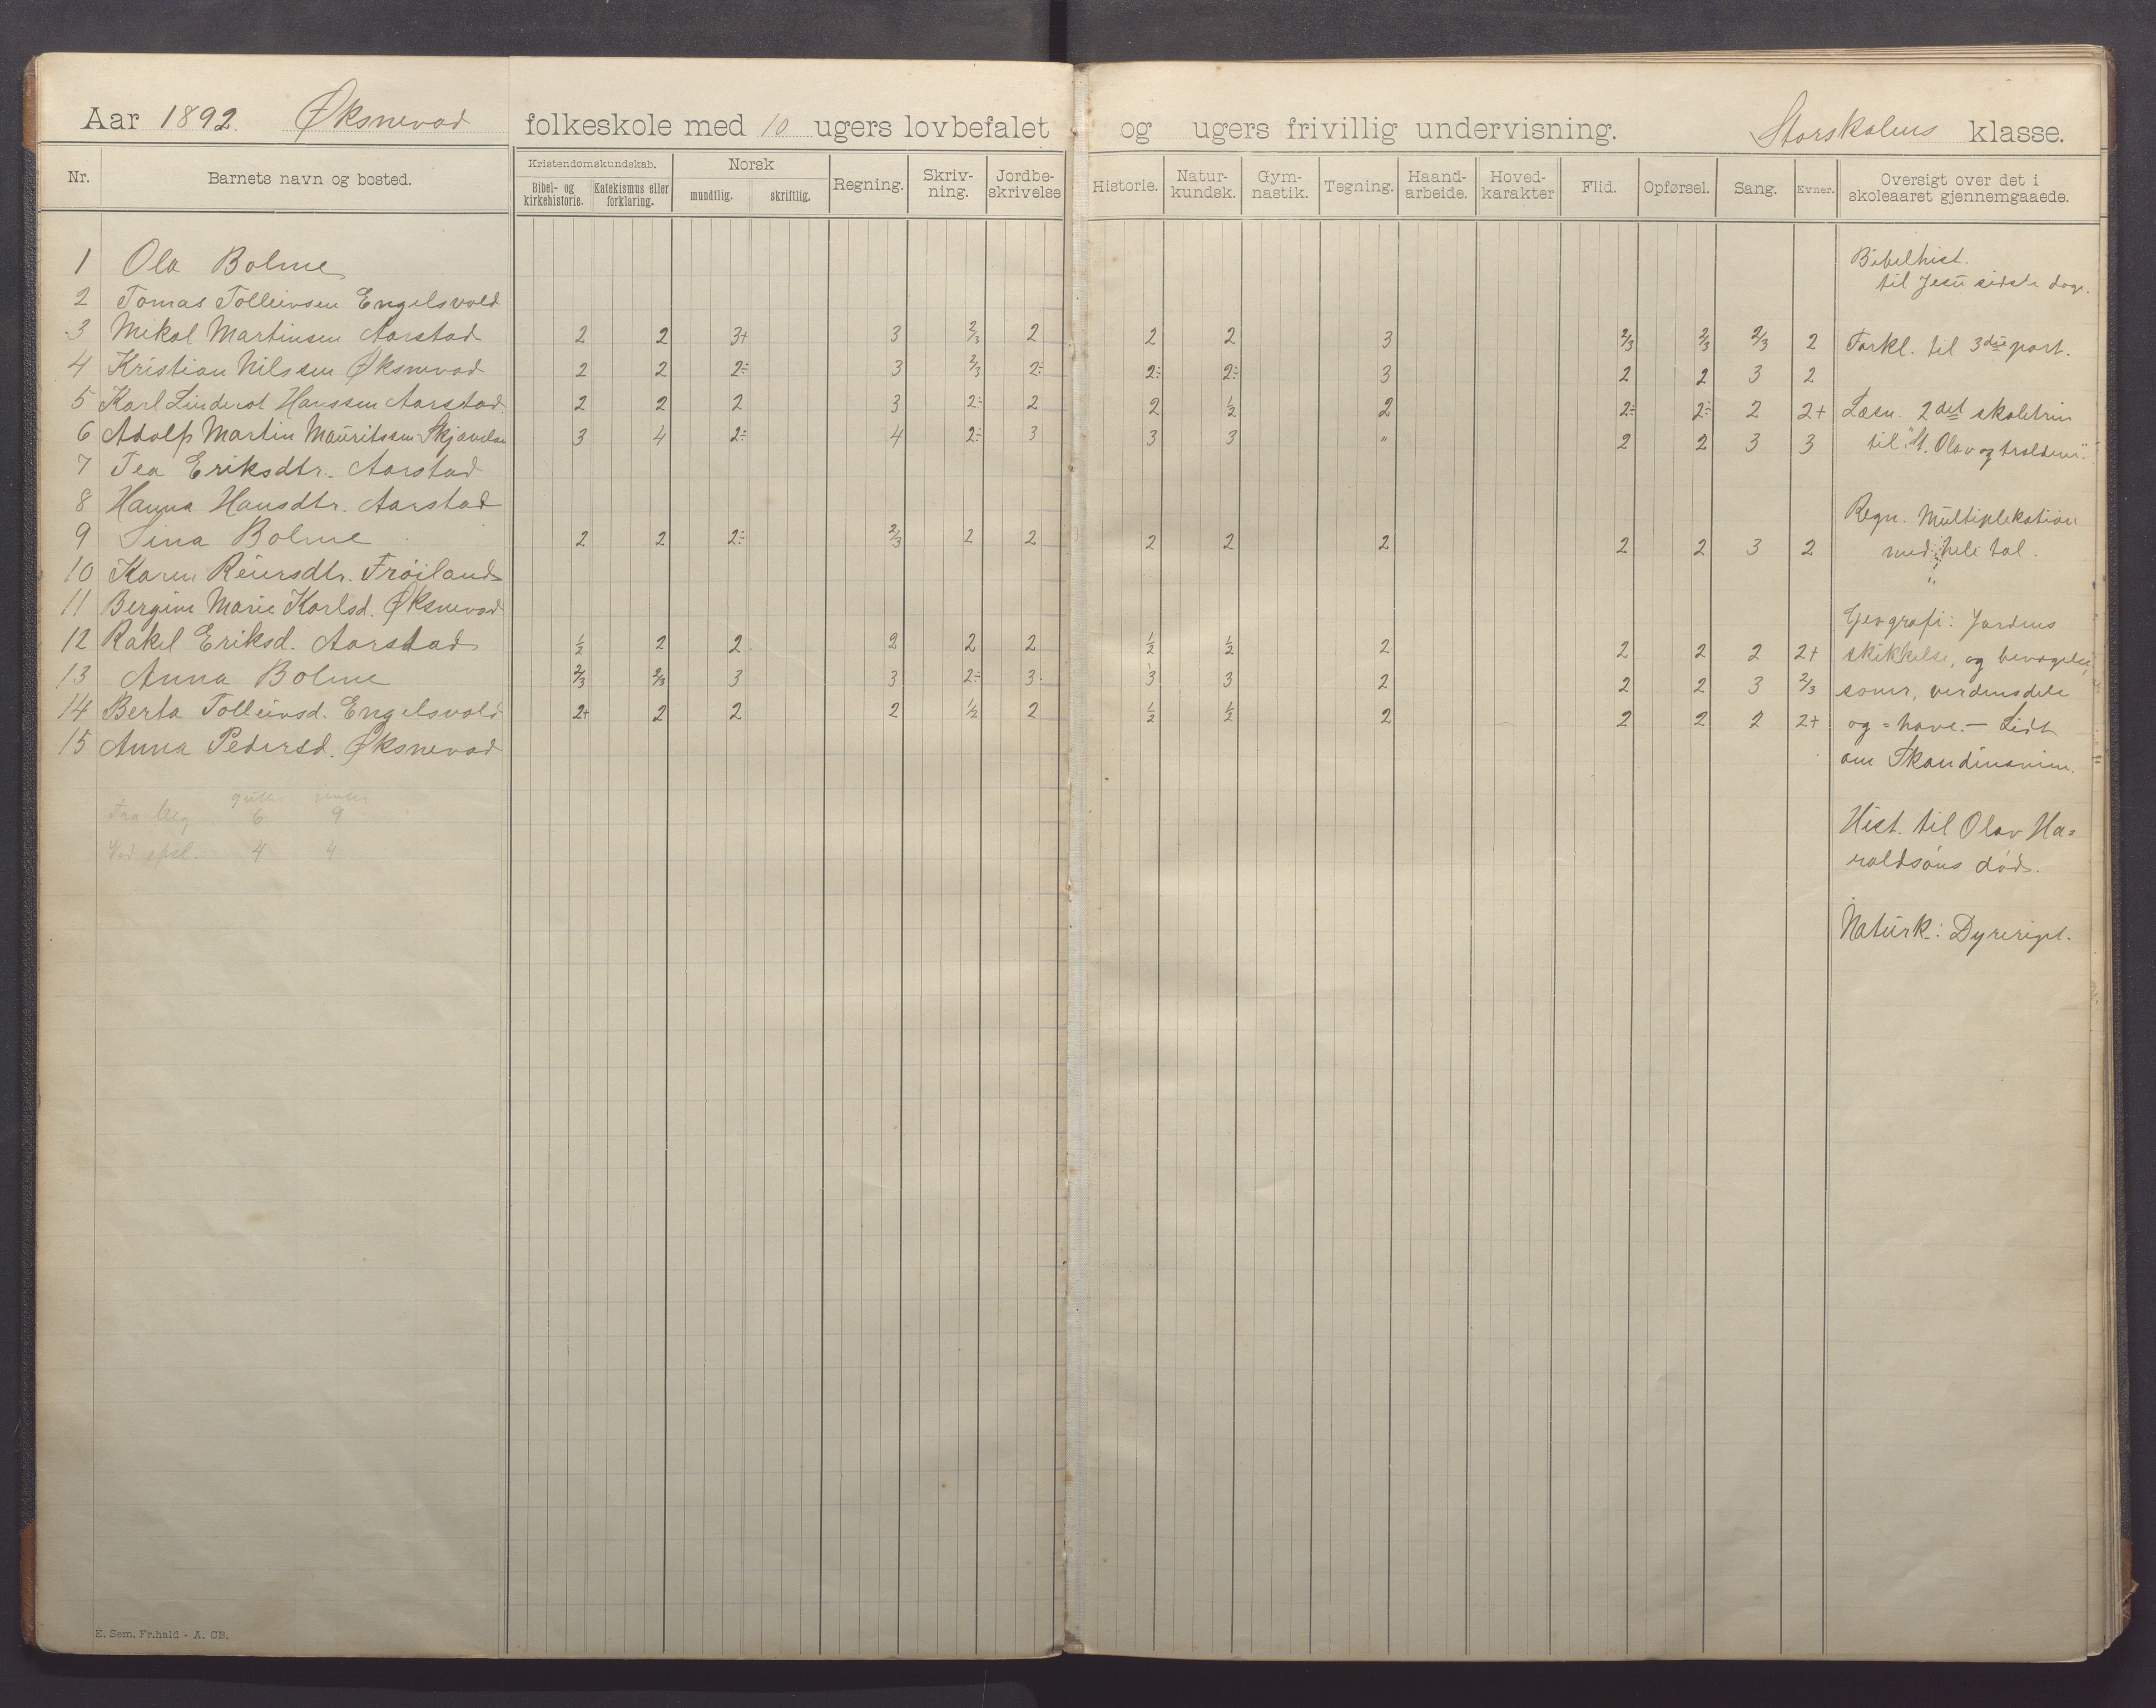 Aar 1892. Øksnevad folkeskole med 10 ugers lovbefalet og ugers frivillig undervisning. Storskolens klasse.
Nr. Barnets navn og bosted. Kristendomskundskab. Bibel- og kirkehistorie. Katekismus eller forklaring. Norsk mundtlig. skriftlig. Regning. Skriv-ning. Jordbe-skrivelse Historie. Natur-kundsk. Gym-nastik. Tegning. Haand-arbeide. Hoved-karakter Flid. Opførsel. Sang. Evner. Oversigt over det i skoleaaret gjennemgaaede.
1 Ola Bolme
2 Tomas Tolleivsen Engelsvold
3 Mikal Martinsen Aarstad 2 2 3+ 3 2/3 2 2 2 3 2/3 2/3 2/3 2
4 Kristian Nilssen Øksnevad 2 2 2÷ 3 2/3 2÷ 2÷ 2÷ 3 2 2 3 2
5 Karl Linderot Hanssen Aarstad 2 2 2 3 2÷ 2 2 1/2 2 2÷ 2÷ 2 2+
6 Adolf Martin Mauritssen Skjævelan 3 4 2÷ 4 2÷ 3 3 3 " 2 2 3 3
7 Tea Eriksdtr. Aarstad
8 Hanna Hansdtr. Aarstad
9 Sina Bolme 2 2 2÷ 2/3 2 2 2 2 2 2 2 3 2
10 Karen Reiersdtr. Frøiland
11 Bergine Marie Karlsd. Øksnevad
12 Rakel Eriksd. Aarstad 1/2 2 2 2 2 2 1/2 1/2 2 2 2 2 2+
13 Anna Bolme 2/3 2/3 3 3 2÷ 3 3 3 2 2 2 3 2/3
14 Berta Tolleivsd. Engelsvold 2+ 2 2 2 1/2 2 1/2 1/2 2 2 2 2 2+
15 Anna Pedersd. Øksnevad
6 9
4 4
Bibelhist.
til Jesu sidste dage.
Forkl. til 3die part.
Læsn. 2det skoletrin
til "St. Olav og troldene".
Regn. Multiplikation
med hele tal.
"
Geografi: Jordens
skikkelse, og bevægelse,
soner, verdensdele
og = have. – Lidt
om Skandinavien.
Hist. til Olav Ha=
raldsøns død.
Naturk.: Dyreriget.
E. Sem. Fr.hald - A. CB.